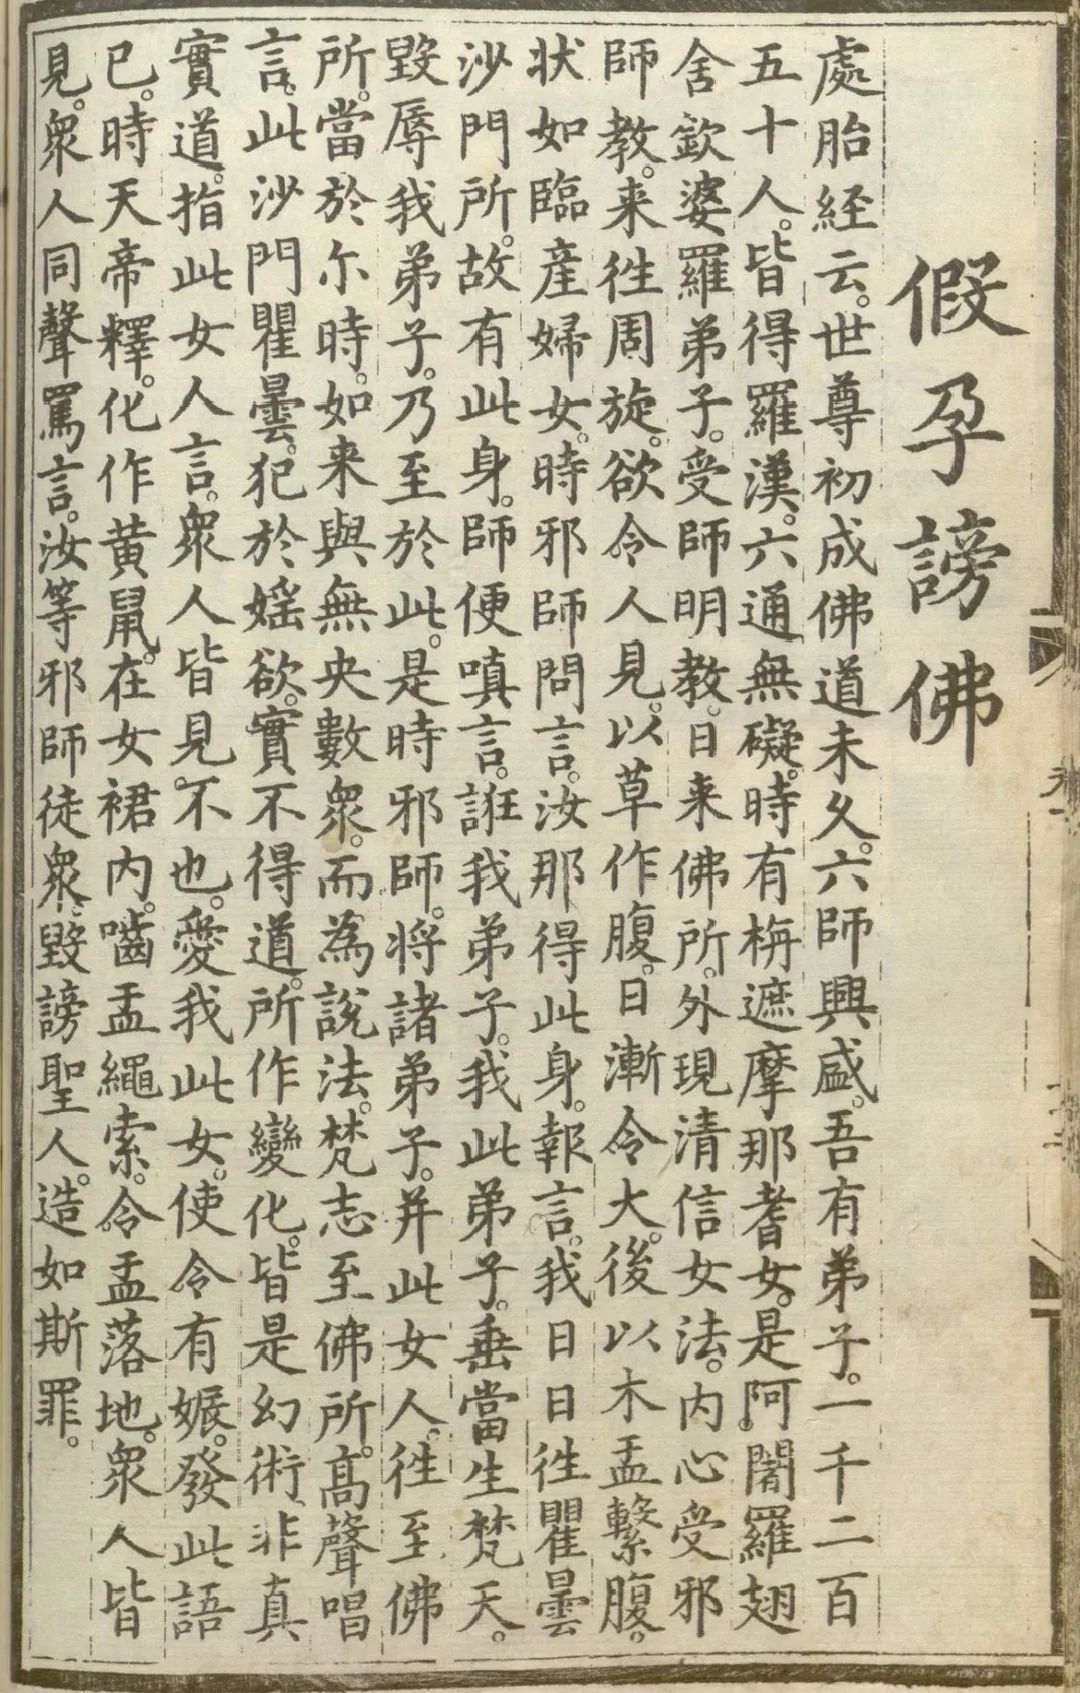 假孕謗佛
處胎経云。世尊初成佛道未久。六師興盛。吾有弟子。一千二百
五十人。皆得羅漢。六通無礙。時有栴遮摩那耆女。是阿闍羅翅
舍欽婆羅弟子。受師明教。日来佛所。外現清信女法。内心受邪
師教。来徃周旋。欲令人見。以草作腹。日漸令大。後以木盂繫腹。
状如臨産婦女。時邪師問言。汝那得此身。報言。我日日徃瞿曇
沙門所。故有此身。師便嗔言。誑我弟子。我此弟子。垂當生梵天。
毀辱我弟子。乃至於此。是時邪師。将諸弟子。并此女人。徃至佛
所。當於尓時。如来與無央數衆。而為說法。梵志至佛所。高聲唱
言。此沙門瞿曇。犯於婬欲。實不得道。所作變化。皆是幻術。非真
實道。指此女人言。衆人皆見。不也。愛我此女。使令有娠。發此語
已。時天帝釋。化作黄鼠。在女裙内。嚙盂繩索。令盂落地。衆人皆
見。衆人同聲罵言。汝等邪師徒衆。毀謗聖人。造如斯罪。
卷一
十三